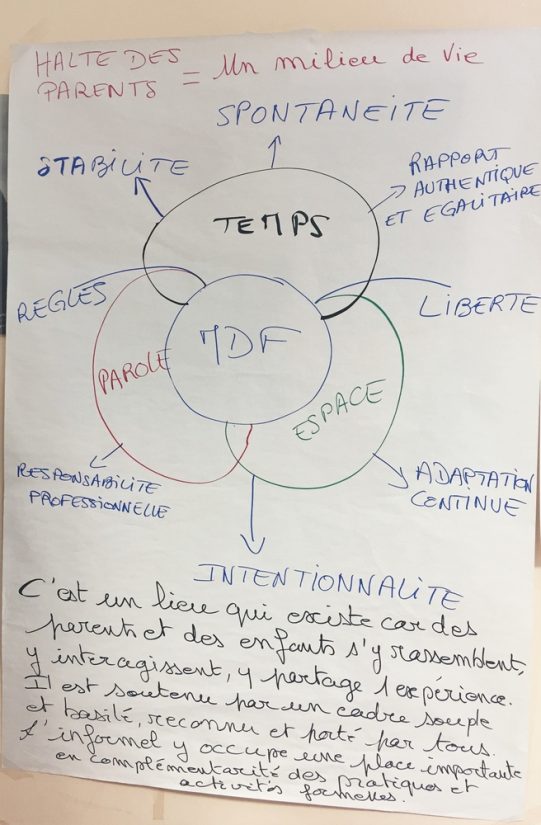 HALTE DES
PARENTS = Un milieu de vie
SPONTANEITE
STABILITE
RAPPORT
AUTHENTIQUE
ET EGALITAIRE
TEMPS
REGLES
LIBERTE
MDF
PAROLE
ESPACE
RESPONSABILITE
PROFESSIONNELLE
ADAPTATION
CONTINUE
INTENTIONNALITE
C'est un lieu qui existe car des
parents et des enfants s'y rassemblent,
y interagissent, y partage l'expérience.
Il est soutenu par un cadre souple
et basilé, reconnu et porté par tous.
L'informel y occupe une place importante
en complémentarité des pratiques et
activités formelles.